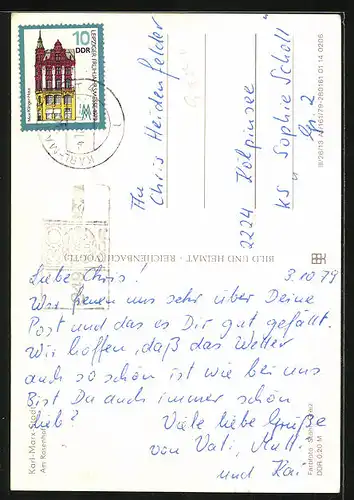 10
DDR
LEIPZIGER FRÜHJAHRSMESSE 1979
KARL-MA
An
Chris Heidenfelder
2224 Kölpinsee
KS Sophie Scholl
Gr. 2
III/26/13 A1/1651/79-280161 01 14 0205
BILD UND HEIMAT · REICHENBACH (VOGTL)
3.10.79
Liebe Chris!
Wir freuen uns sehr über Deine
Post und das es Dir gut gefällt.
Wir hoffen, daß das Wetter
auch so schön ist wie bei uns
Bist Du auch immer schön
lieb?
Viele liebe Grüße
von Vati, Mutti
und Kai
Karl-Marx-Stadt
Am Rosenhof
DDR 0,20 M